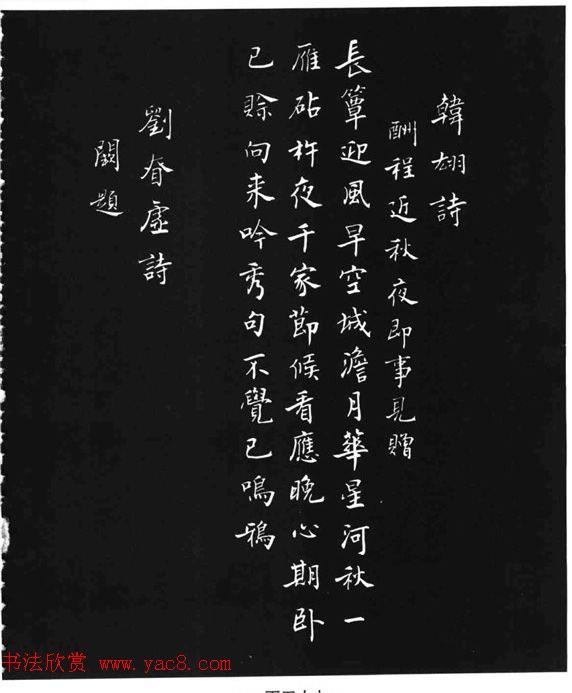 韓翃詩
酬程近秋夜即事見贈
長簟迎風早空城澹月華星河秋一
雁砧杵夜千家節候看應晚心期卧
已賒向来吟秀句不覺已鳴鴉
劉眘虛詩
闕題
书法欣赏 www.yac8.com